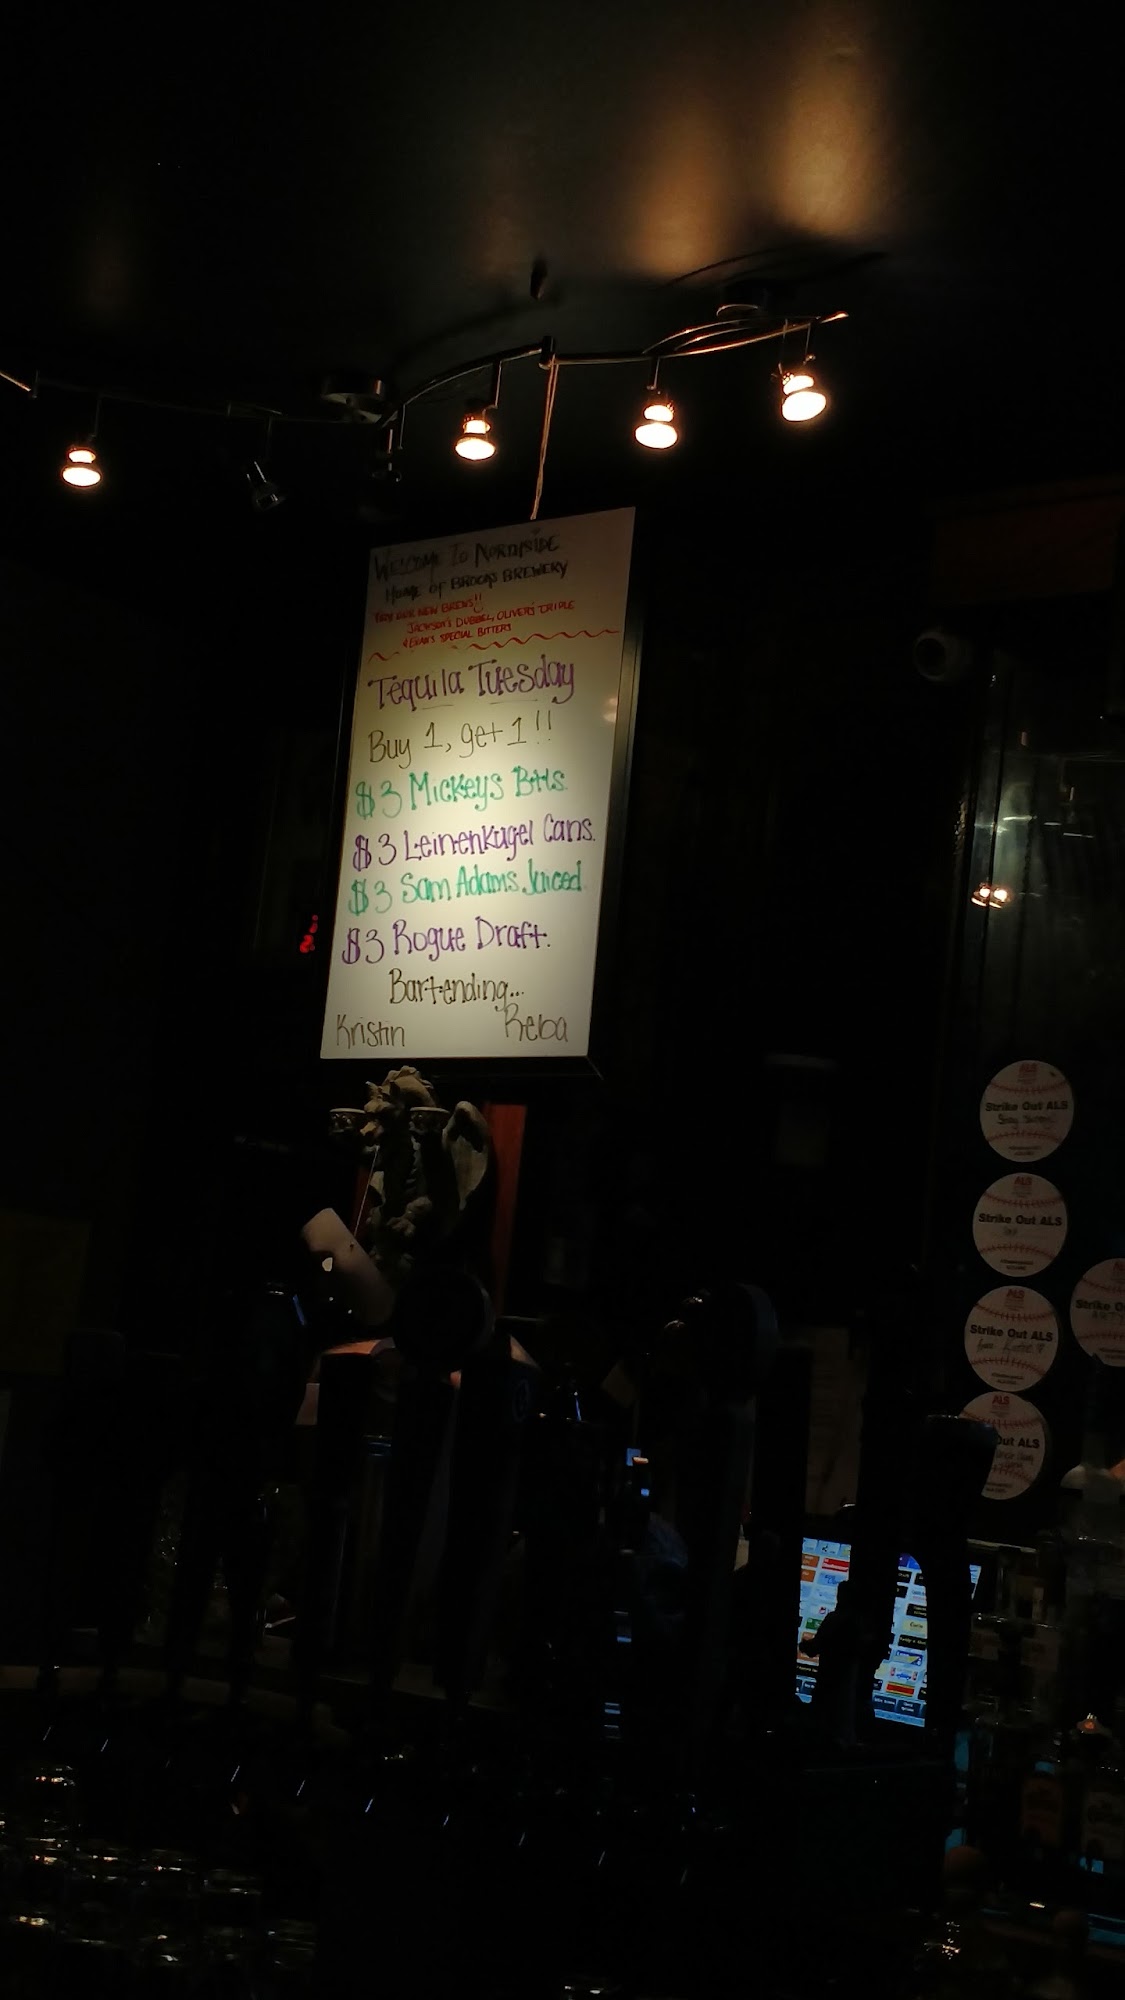 WELCOME TO NORTHSIDE
HOME OF BROOKS BREWERY
TRY OUR NEW BREWS!!
JACKSON'S DUBBEL, OLIVER'S TRIPLE
& EVAN'S SPECIAL BITTERS
Tequila Tuesday
Buy 1, get 1!!
$3 Mickeys Btls.
$3 Leinenkugel Cans.
$3 Sam Adams Juiced.
$3 Rogue Draft.
Bartending...
Kristin Reba
ALS
Strike Out ALS
ALS
Strike Out ALS
ALS
Strike Out ALS
Strike O
ALS
Out ALS